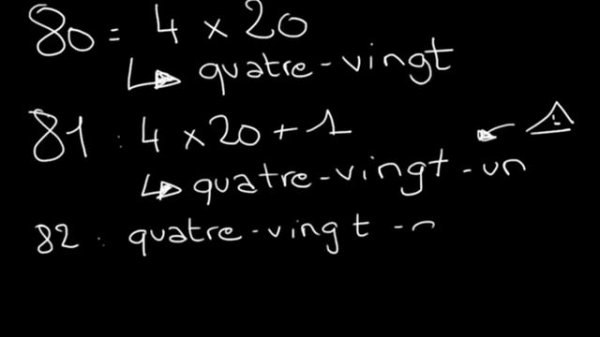 80 = 4 x 20
quatre-vingt
81 : 4 x 20 + 1
quatre-vingt-un
82 : quatre-vingt-